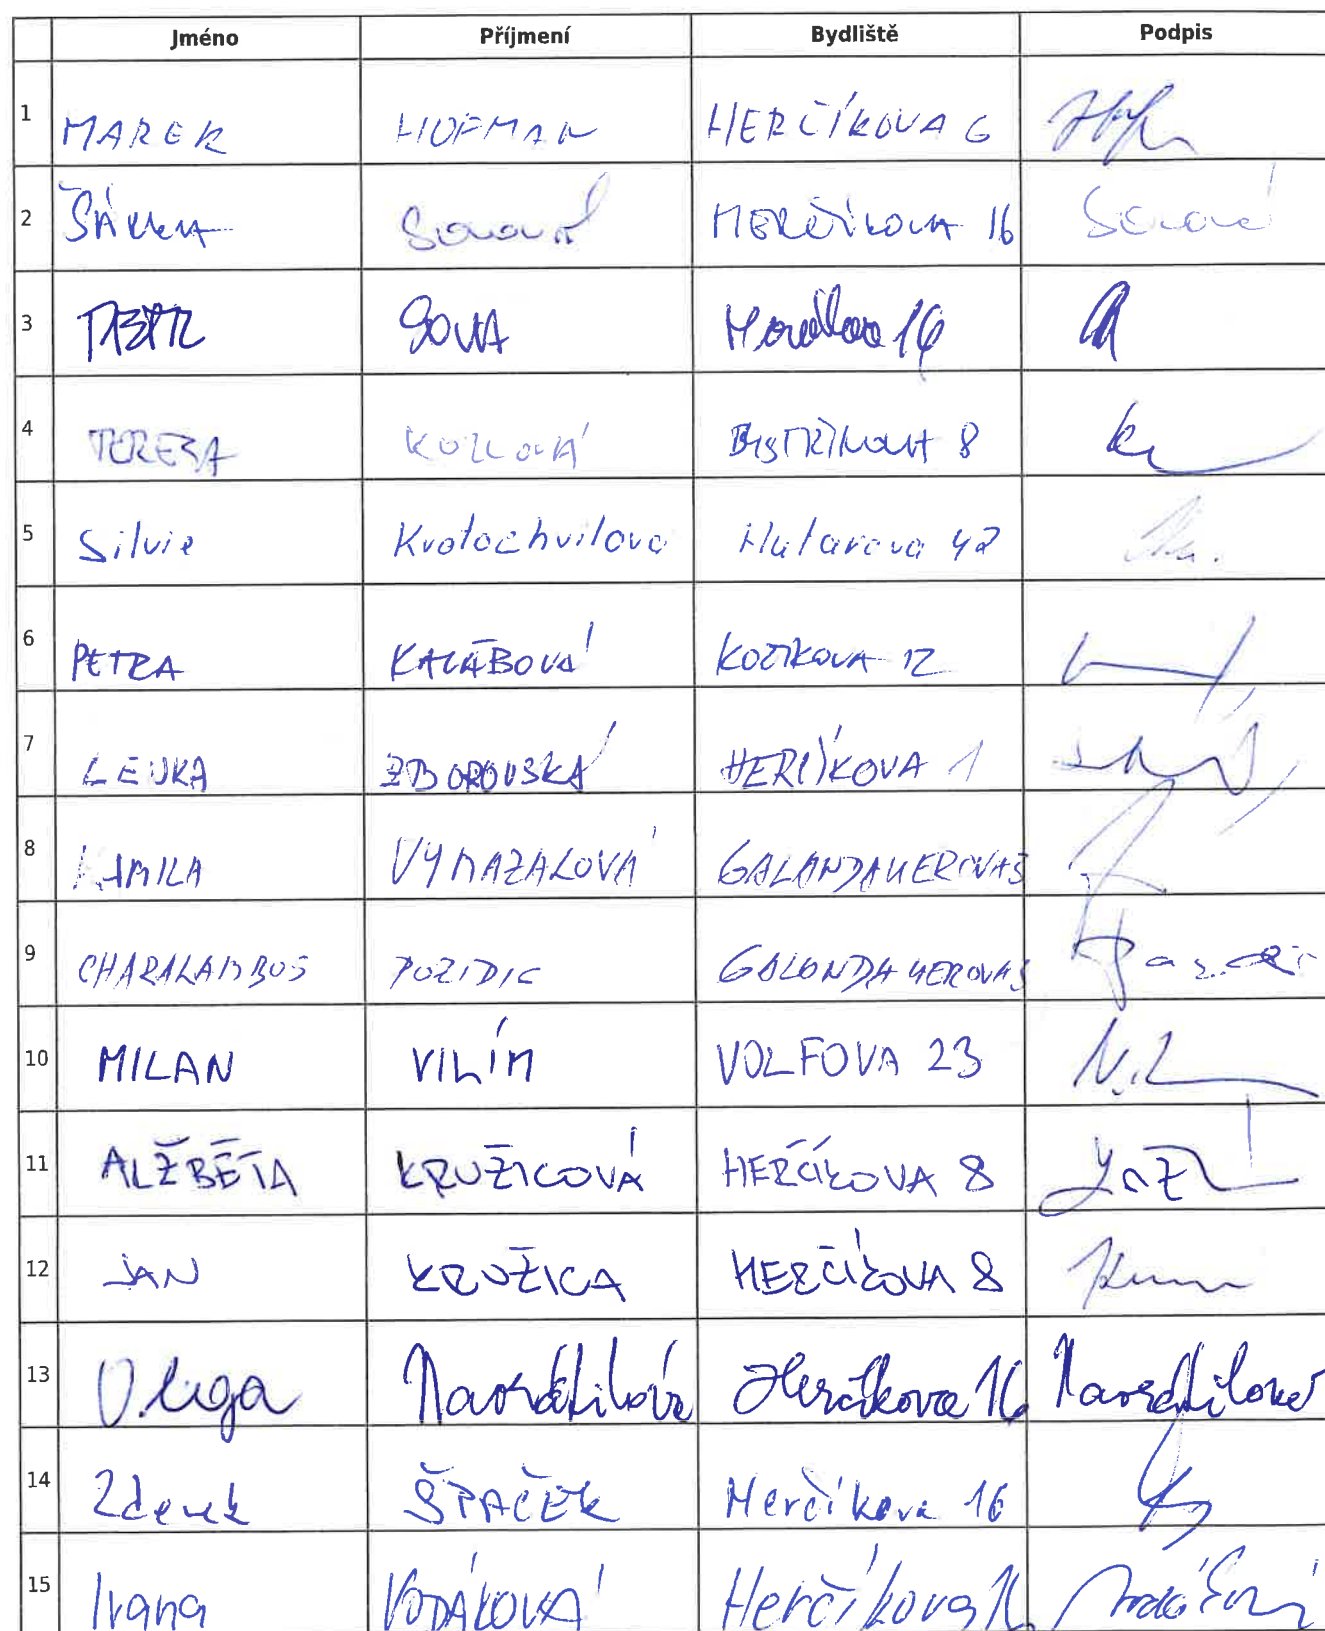 Jméno Příjmení Bydliště Podpis
1 MAREK HOFMAN HERČÍKOVA 6
2 ŠÁRKA Sovová HERČÍKOVA 16 Sovová
3 PETR SOVA Herčíkova 16
4 TEREZA KOZLOVÁ BYSTŘINOVA 8
5 Silvie Kratochvilova Hutarova 42
6 PETRA KALÁBOVÁ KOZÍKOVA 12
7 LENKA ZBOROVSKÁ HERČÍKOVA 1
8 KAMILA VYMAZALOVÁ
9 CHARALAMBOS
10 MILAN VILÍM VOLFOVA 23
11 ALŽBĚTA KRUŽICOVÁ HERČÍKOVA 8
12 JAN KRUŽICA HERČÍKOVA 8
13 Olga Navrátilová Herčíkova 16 Navrátilová
14 Zdenek ŠPAČEK Herčíkova 16
15 Ivana VODÁKOVÁ Herčíkova 16